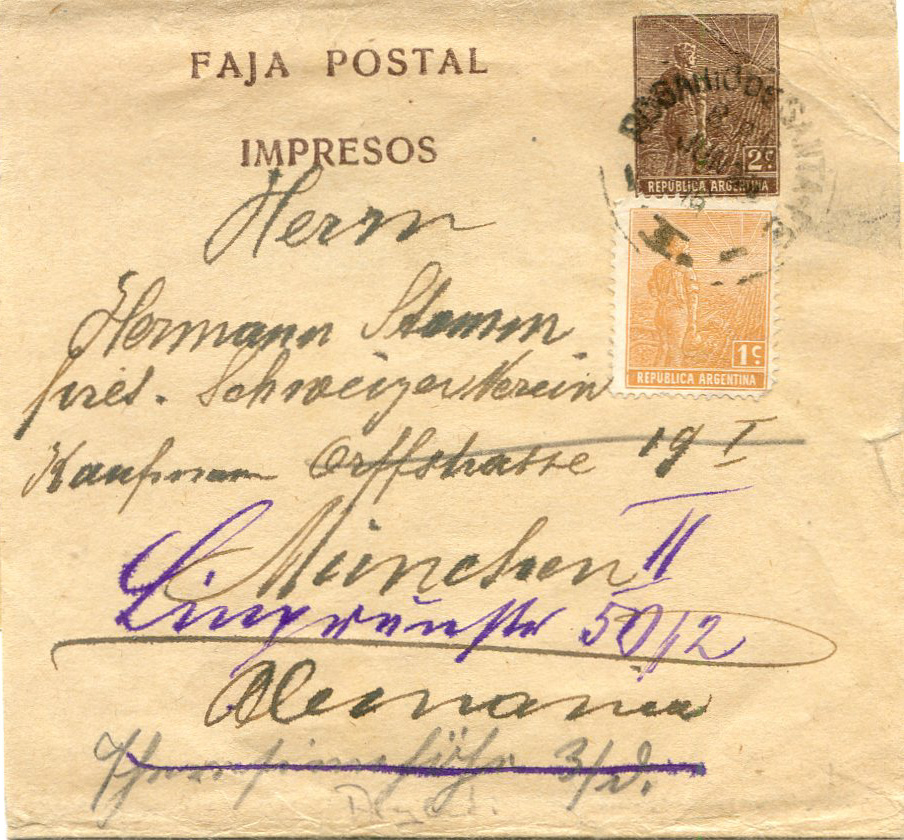 FAJA POSTAL
IMPRESOS
2c
REPUBLICA ARGENTINA
ROSARIO DE SANTA
JUN
1c
REPUBLICA ARGENTINA
Herrn
Hermann Stamm
pres. Schweizer Verein
Kaufmann Orffstrasse 19 I
München II
50/2
Alemania
3/